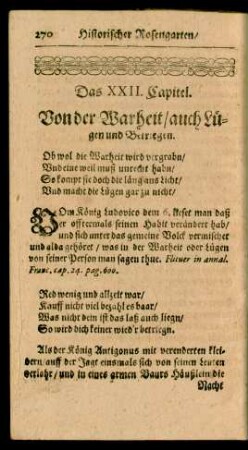 270 Historischer Rosengarten/
Das XXII. Capitel.
Von der Warheit/ auch Lü-
gen und Betriegen.
Ob wol die Warheit wird vergrabn/
Vnd eine weil muß unrecht habn/
So kompt sie doch die läng ans Licht/
Vnd macht die Lügen gar zu nicht/
VOm König Ludovico dem 6. lieset man daß
er offtermals seinen Habit verändert hab/
und sich unter das gemeine Volck vermischet
und alda gehöret/ was in der Warheit oder Lügen
von seiner Person man sagen thue.
Franc. cap. 24. pag. 600.
Red wenig und allzeit war/
Kauff nicht viel bezahl es baar/
Was nicht dein ist das laß auch liegn/
So wird dich keiner wied'r betriegn.
Als der König Antigonus mit verenderten klei-
dern/ auff der Jagt einsmals sich von seinen Leuten
verlohr/ und in eines armen Baurs Häußlein die
Nacht